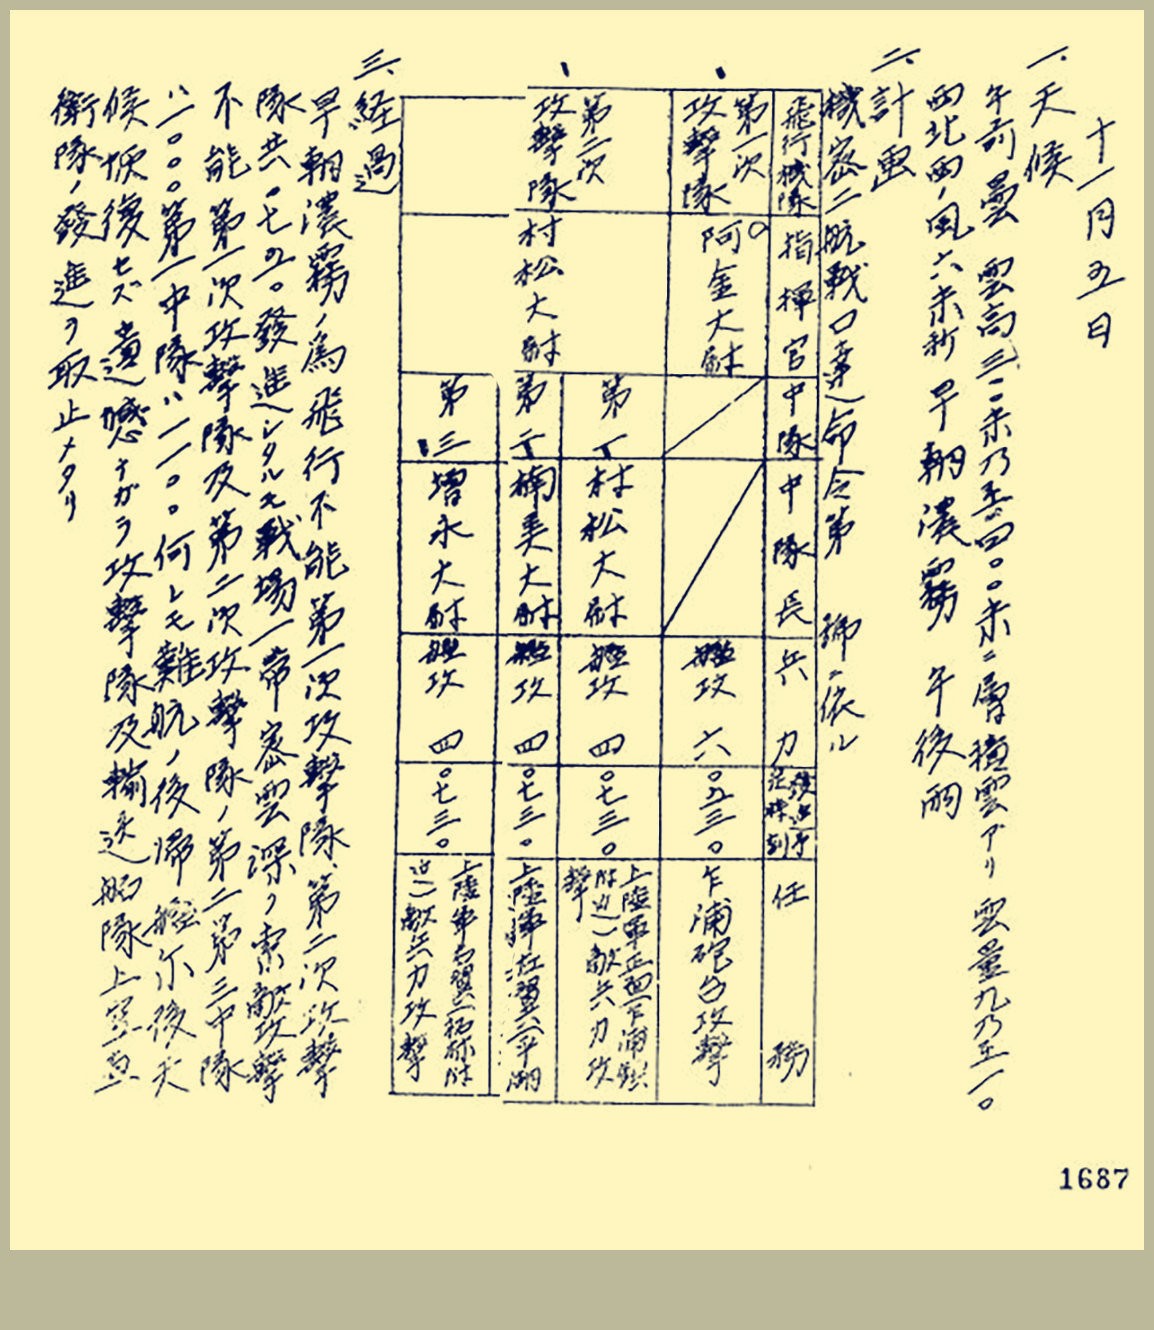 十一月五日
一、天候
午前曇 雲高三〇〇米乃至四〇〇米ニ層積雲アリ 雲量九乃至一〇
西北西ノ風六米 早朝濃霧 午後雨
二、計画
機密二航戦口達命令第 號ニ依ル
飛行機隊 指揮官 中隊 中隊長 兵力 發進予定時刻 任務
第一次攻撃隊 阿金大尉 艦攻 六 〇五三〇 乍浦砲台攻撃
第二次攻撃隊 村松大尉 第一 村松大尉 艦攻 四 〇七三〇 上陸軍正面乍浦鎮附近ノ敵兵力攻撃
第二 楠美大尉 艦攻 四 〇七三〇 上陸軍左翼
第三 増永大尉 艦攻 四 〇七三〇 上陸軍右翼 附近ノ敵兵力攻撃
三、経過
早朝濃霧ノ為飛行不能第一次攻撃隊、第二次攻撃
隊共〇七四〇發進シタルモ戦場一帯密雲深ク索敵攻撃
不能第一次攻撃隊及第二次攻撃隊ノ第二第三中隊
ハ一〇〇〇第一中隊ハ一一〇〇何レモ難航ノ後帰艦尓後天
候恢復セズ遺憾ナガラ攻撃隊及輸送船隊上空直
衛隊ノ發進ヲ取止メタリ
1687